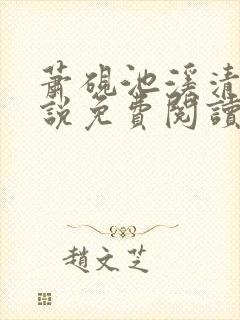 蕭硯池溪清
說免費閱讀
趙文芝